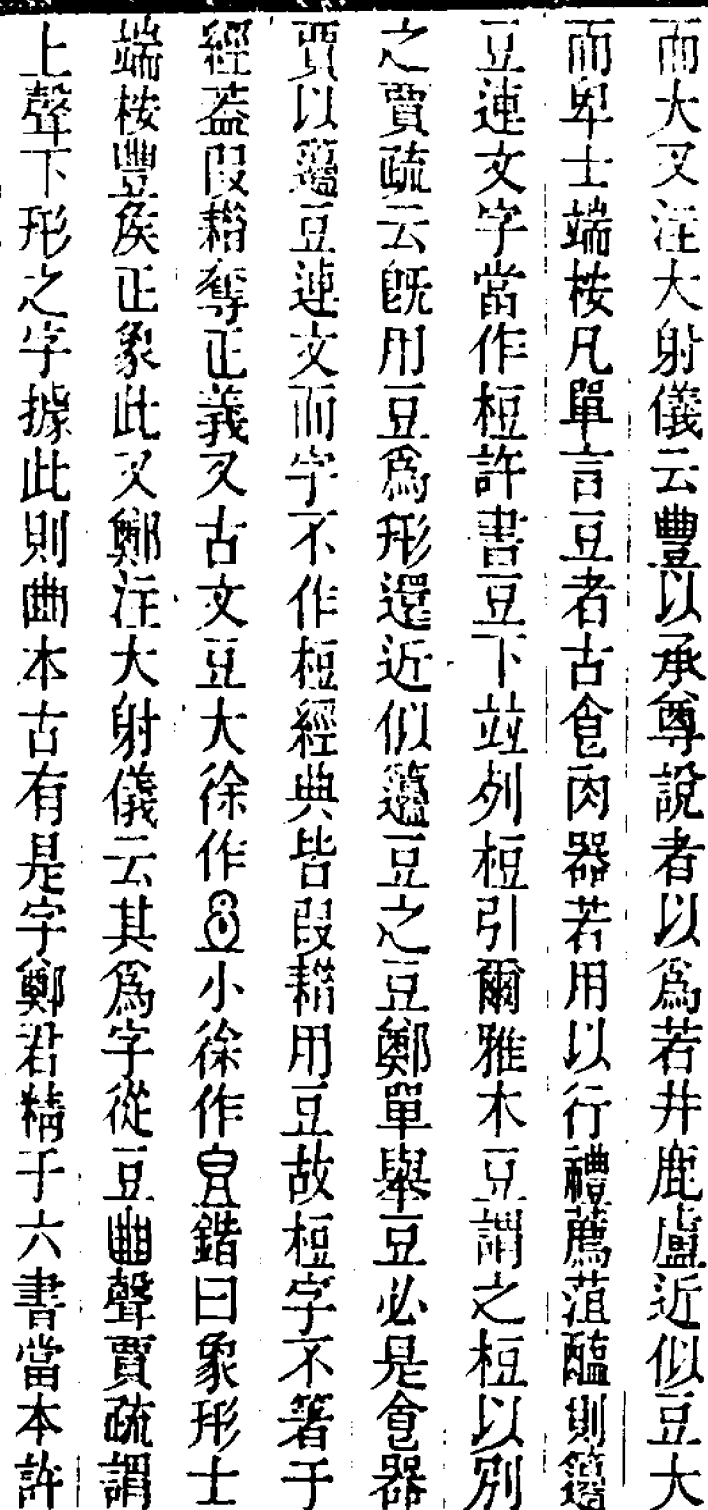 而大又注大射儀云豐以承尊說者以爲若井鹿盧近似豆大
而卑士端桉凡單言豆者古食肉器若用以行禮薦菹醢則籩
豆連文字當作梪許書豆下竝列梪引爾雅木豆謂之梪以別
之賈疏云旣用豆爲形還近似籩豆之豆鄭單舉豆必是食器
賈以籩豆連文而字不作梪經典皆叚耤用豆故梪字不箸于
經葢叚耤奪正義又古文豆大徐作小徐作鍇曰象形士
端桉豐矦正象此又鄭注大射儀云其爲字從豆𧯮聲賈疏謂
上聲下形之字據此則曲本古有是字鄭君精于六書當本許